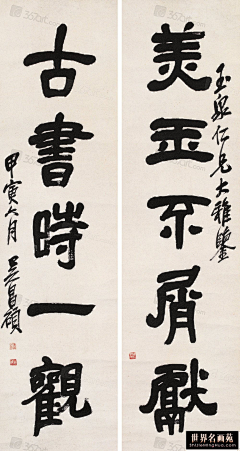 玉泉仁兄大雅鑒
美玉不屑獻
古書時一觀
甲寅六月 吳昌碩
世界名画苑